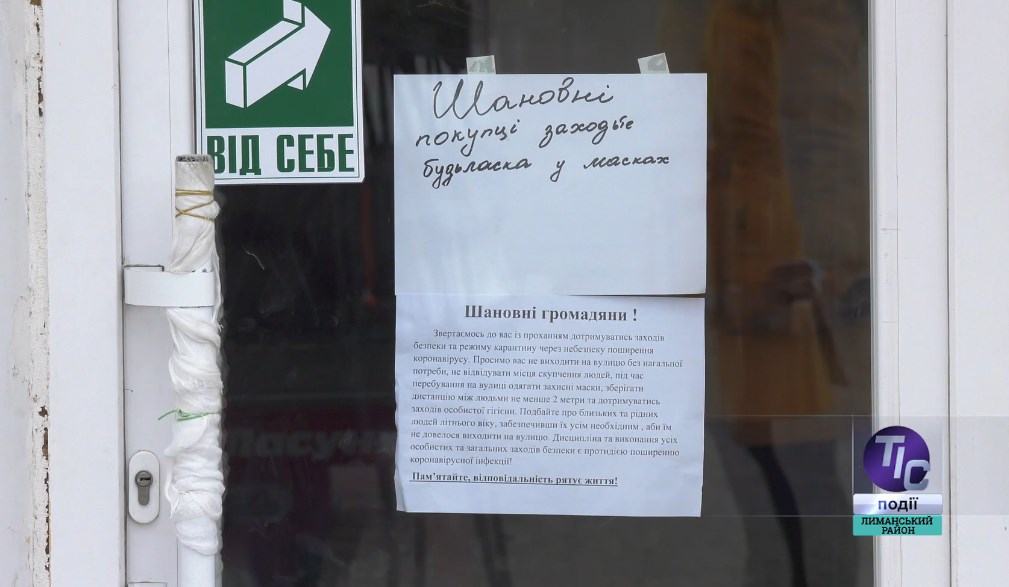 ВІД СЕБЕ
Шановні
покупці заходьте
будьласка у масках
Шановні громадяни !
Звертаємось до вас із проханням дотримуватись заходів
безпеки та режиму карантину через небезпеку поширення
коронавірусу. Просимо вас не виходити на вулицю без нагальної
потреби, не відвідувати місця скупчення людей, під час
перебування на вулиці одягати захисні маски, зберігати
дистанцію між людьми не менше 2 метри та дотримуватись
заходів особистої гігієни. Подбайте про близьких та рідних
людей літнього віку, забезпечивши їх усім необхідним , аби їм
не довелося виходити на вулицю. Дисципліна та виконання усіх
особистих та загальних заходів безпеки є протидією поширенню
коронавірусної інфекції!
Пам'ятайте, відповідальність рятує життя!
ТІС
ПОДІЇ
ЛИМАНСЬКИЙ
РАЙОН